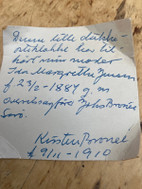 Denne lille dukke-
stikkakke har til-
hørt min moder
Ida Margrethe Jensen
f 29/2-1884 g. m.
overlæge Johs Bronée
Sorø.
Kirsten Bronée
f 9/11-1910